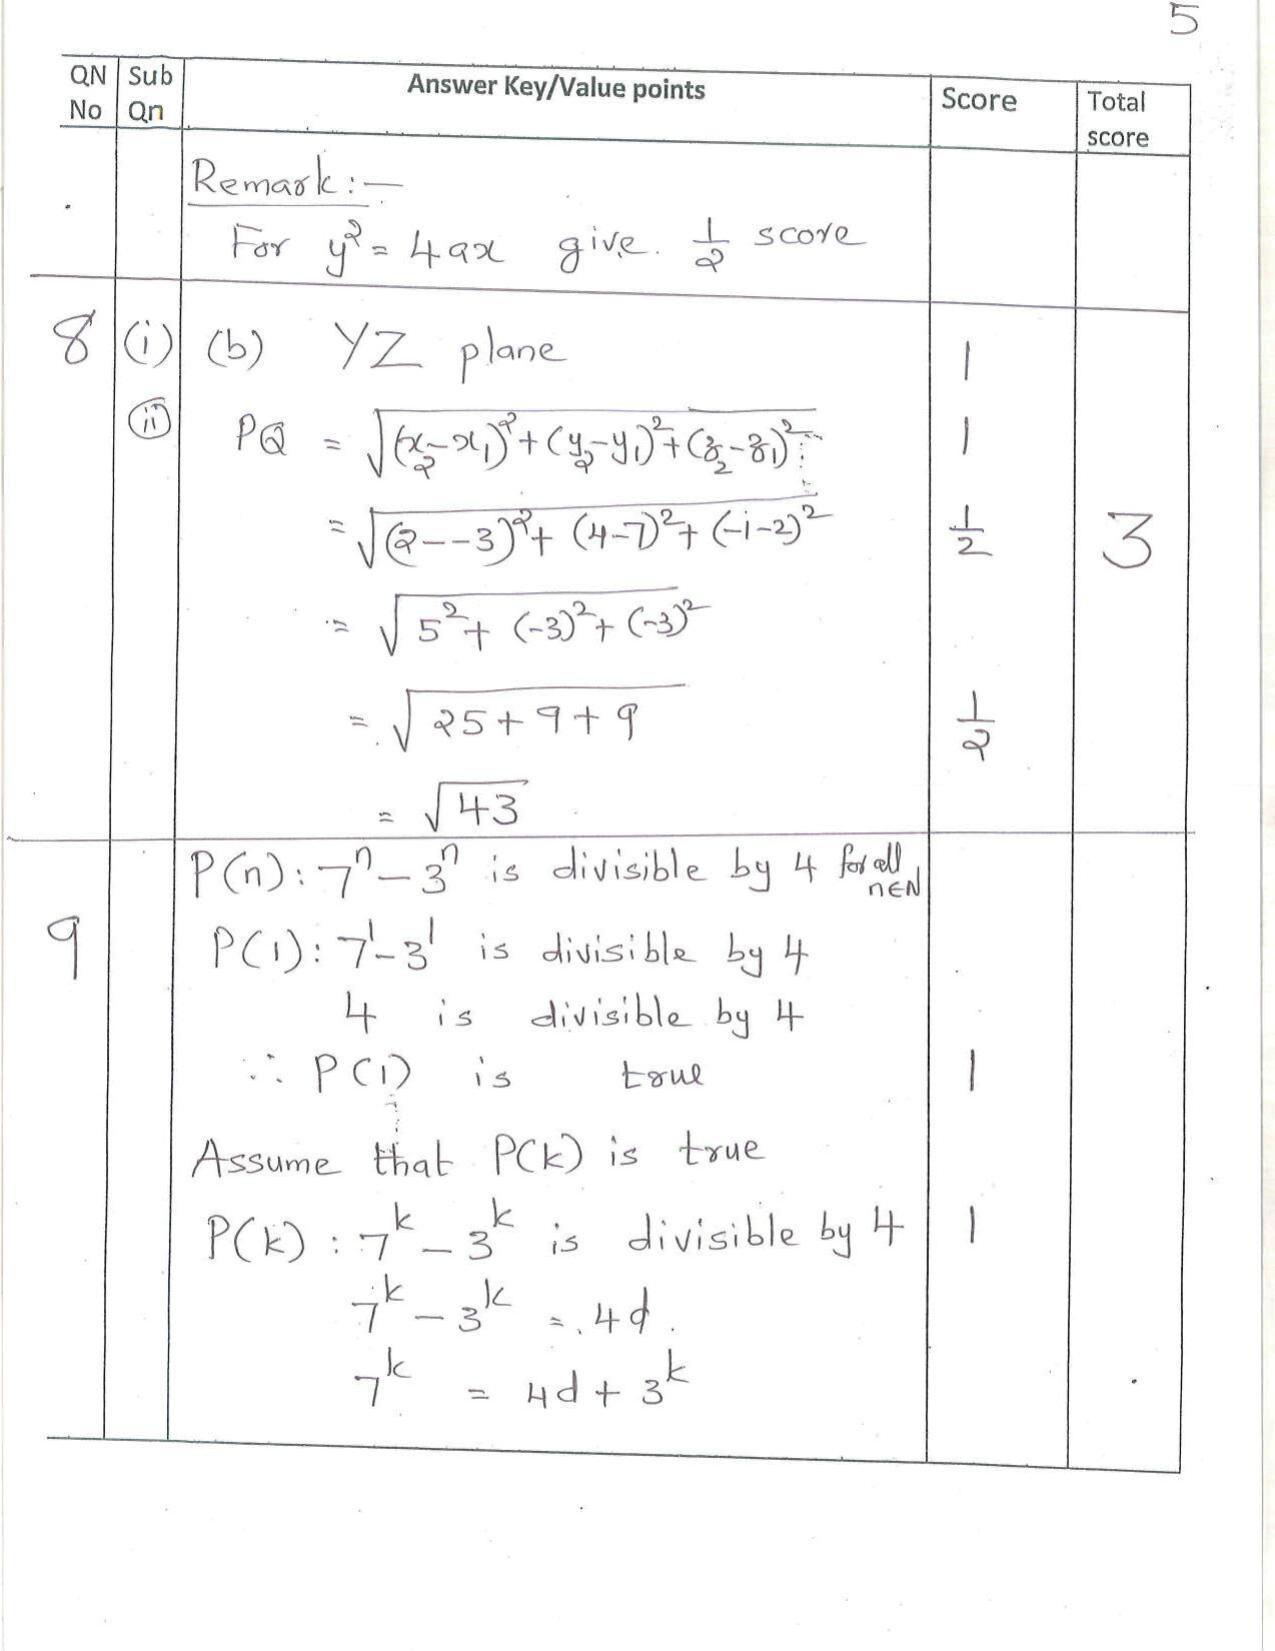 5
QN No | Sub Qn | Answer Key/Value points | Score | Total score
Remark :—
For y² = 4ax give. 1/2 score
8 (i) (b) YZ plane 1
(ii) PQ = √((x₂-x₁)²+(y₂-y₁)²+(z₂-z₁)²) 1
= √((2--3)²+(4-7)²+(-1-2)²) 1/2 3
= √(5²+(-3)²+(-3)²)
= √(25+9+9) 1/2
= √43
P(n): 7ⁿ-3ⁿ is divisible by 4 for all n∈N
9 P(1): 7¹-3¹ is divisible by 4
4 is divisible by 4
∴ P(1) is true 1
Assume that P(k) is true
P(k) : 7ᵏ-3ᵏ is divisible by 4 1
7ᵏ-3ᵏ = 4d.
7ᵏ = 4d+3ᵏ